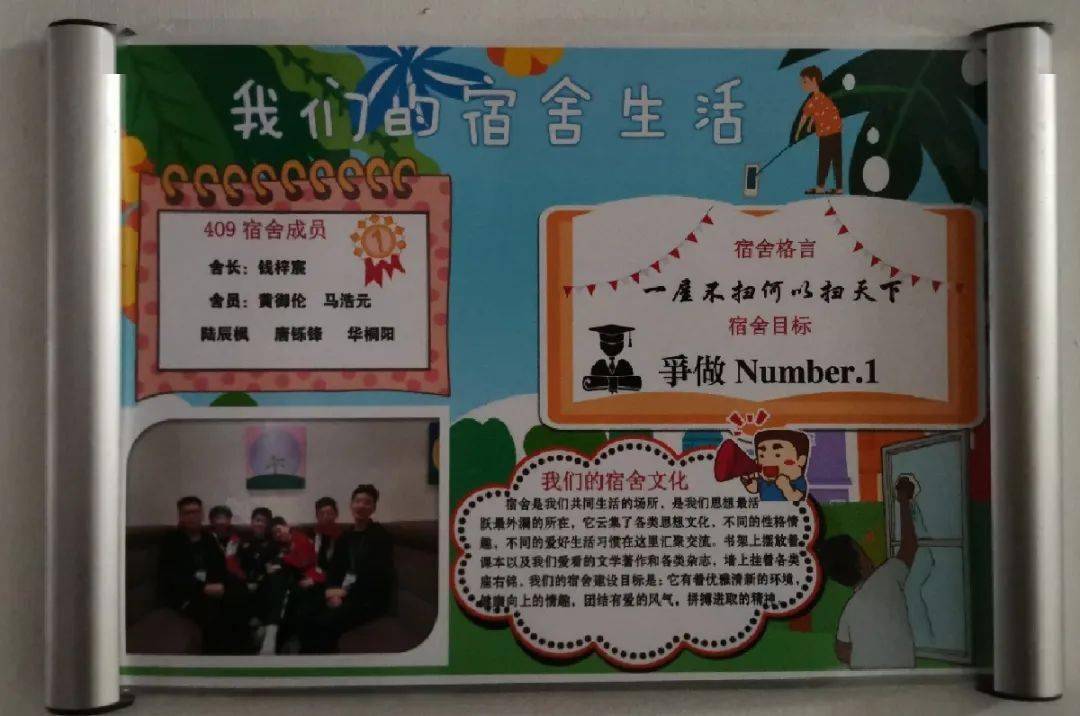 我们的宿舍生活
409 宿舍成员
1
舍长：钱梓宸
舍员：黄御伦 马浩元
陆辰枫 唐铄锋 华桐阳
宿舍格言
一屋不扫何以扫天下
宿舍目标
争做 Number.1
我们的宿舍文化
宿舍是我们共同生活的场所，是我们思想最活
跃最外漏的所在，它云集了各类思想文化，不同的性格情
趣，不同的爱好生活习惯在这里汇聚交流。书架上摆放着
课本以及我们爱看的文学著作和各类杂志，墙上挂着各类
座右铭，我们的宿舍建设目标是：它有着优雅清新的环境，
健康向上的情趣，团结有爱的风气，拼搏进取的精神。